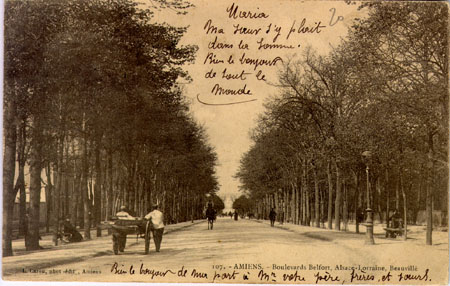 Maria
Ma sœur s'y plaît
dans la Somme.
Bien le bonjour
de tout le
Monde
20
107. - AMIENS. - Boulevards Belfort, Alsace-Lorraine, Beauville
L. Caron, phot.-édit., Amiens
Bien le bonjour de ma part à Mr votre père, frères, et sœurs.